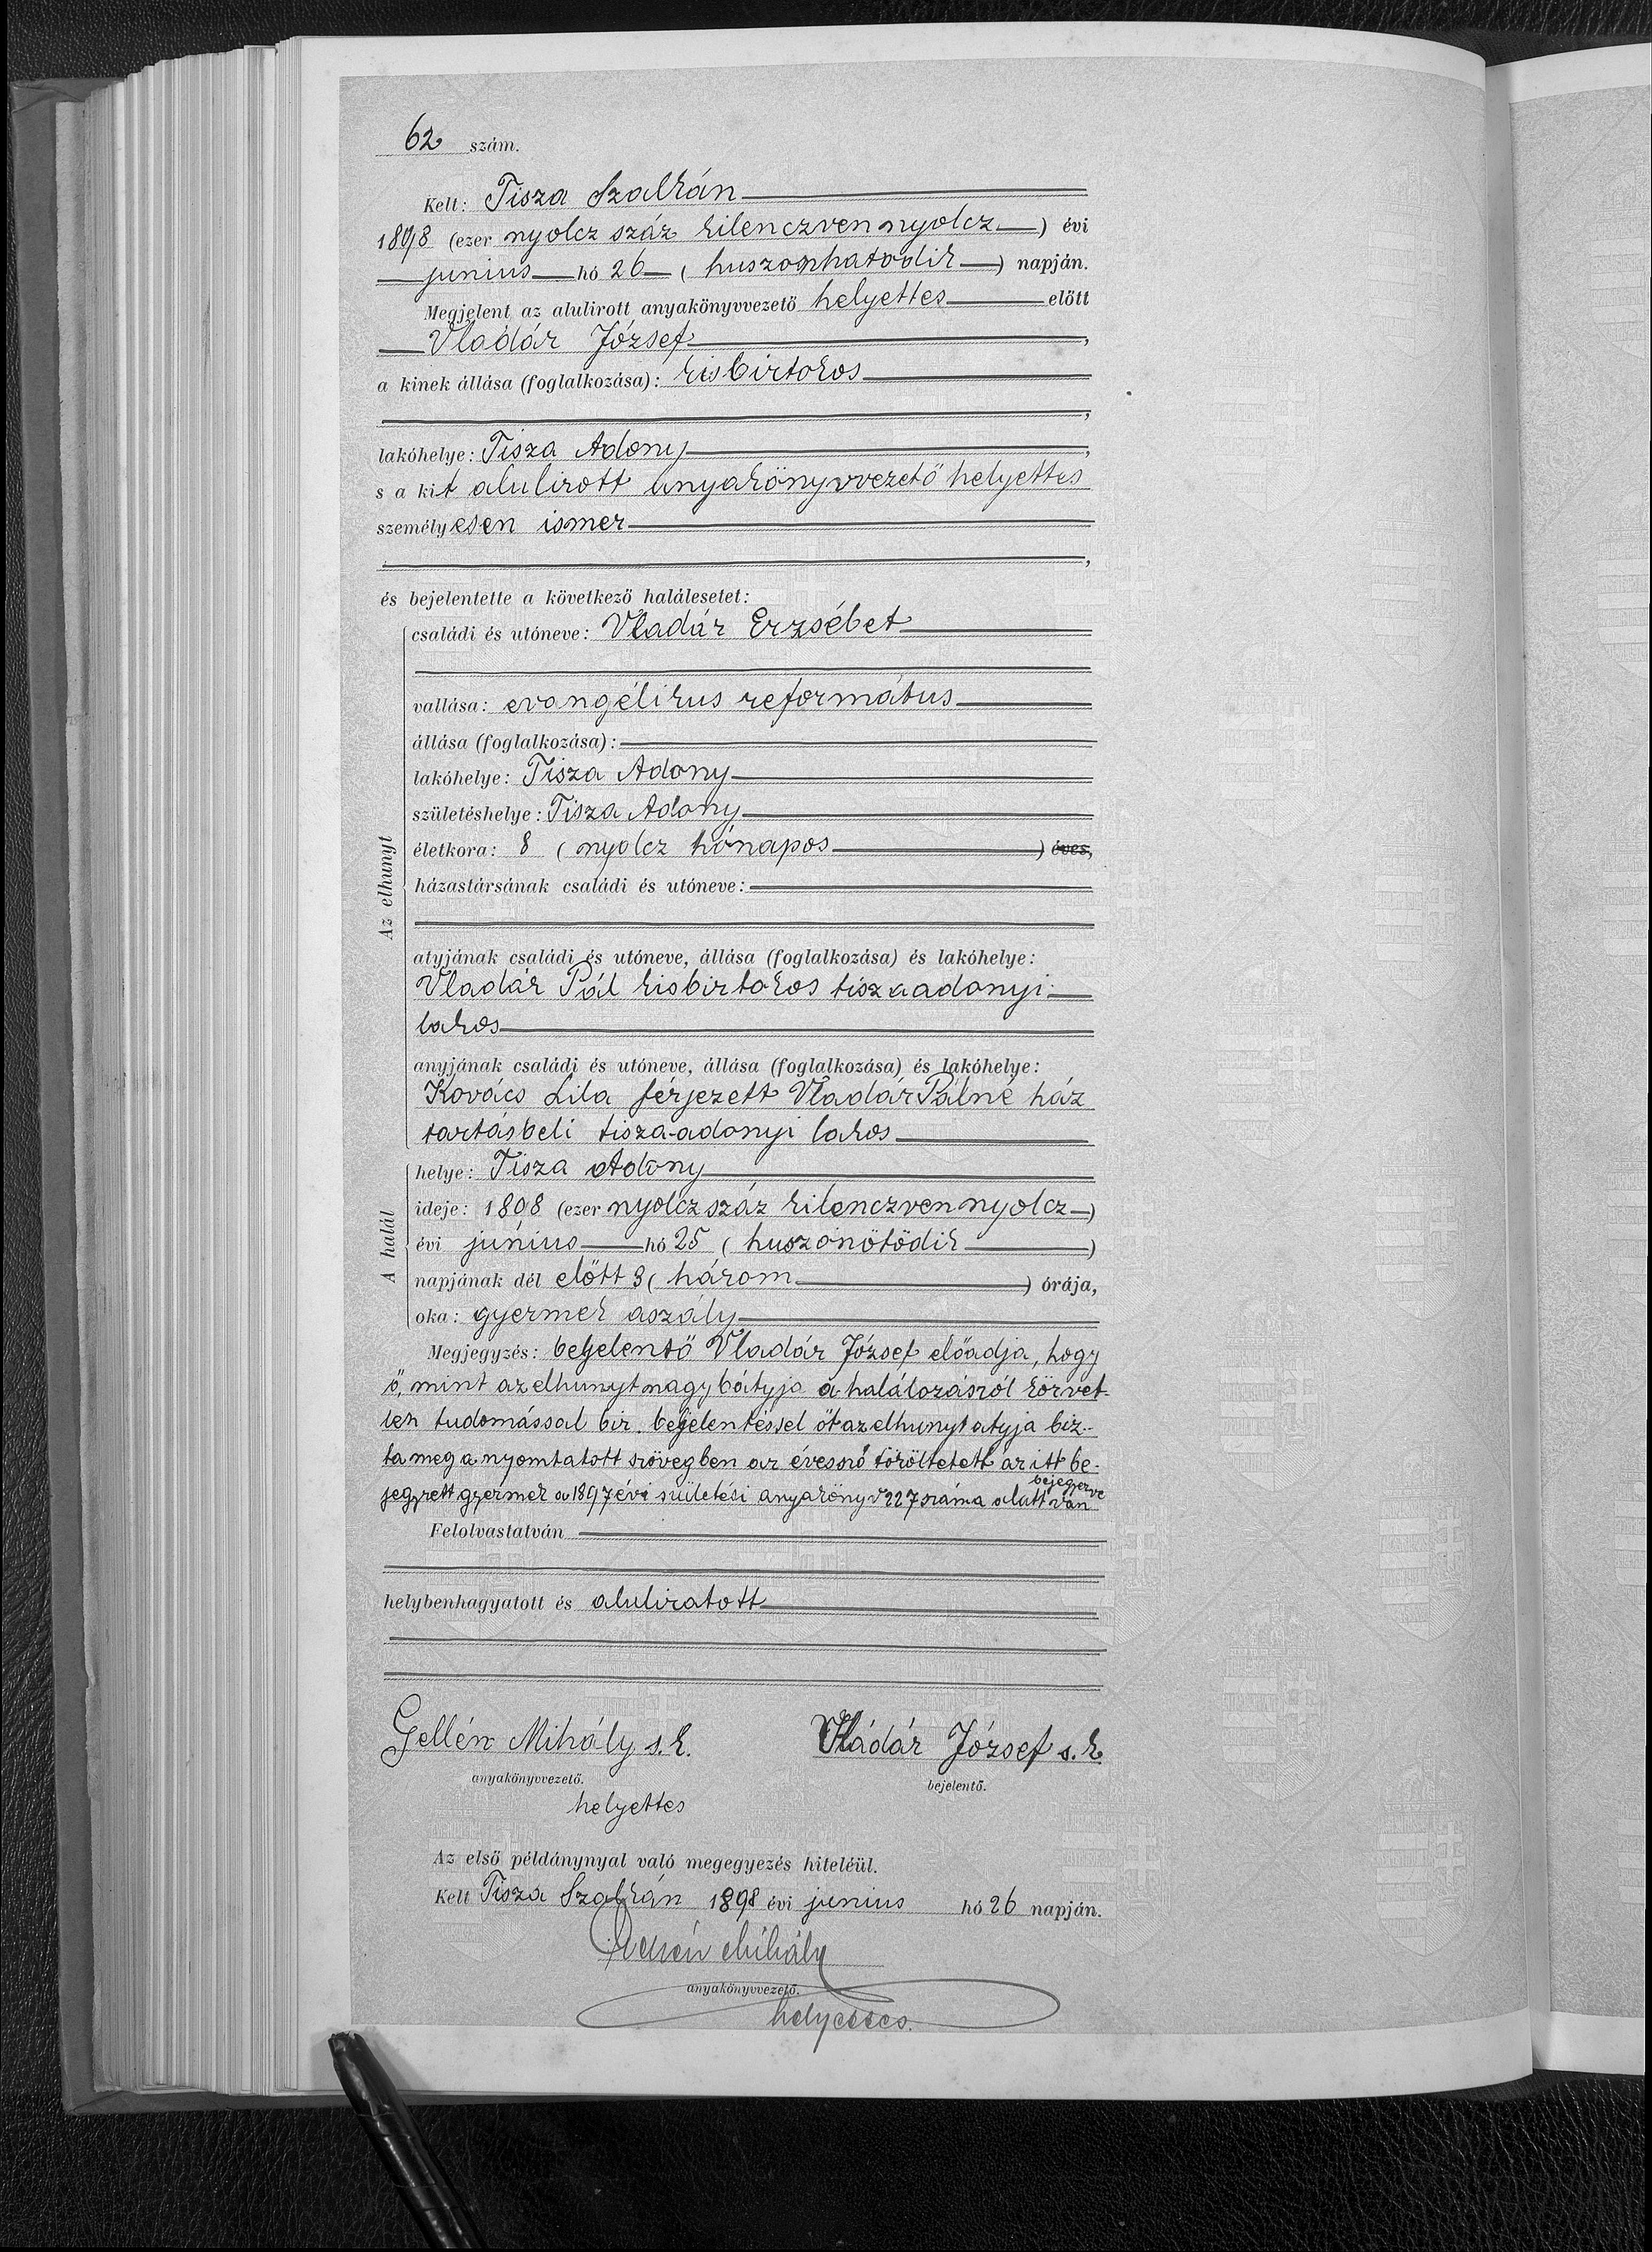 62 szám.
Kelt: Tisza Szalkán
1898 (ezer nyolcz száz kilenczven nyolcz) évi
junius hó 26 (huszonhatodik) napján.
Megjelent az alulirott anyakönyvvezető helyettes előtt
Vladár József,
a kinek állása (foglalkozása): kisbirtokos
,
lakóhelye: Tisza Adony,
s a kit alulirott anyakönyvvezető helyettes
személyesen ismer
,
és bejelentette a következő halálesetet:
Az elhunyt
családi és utóneve: Vladár Erzsébet
vallása: evangélikus református
állása (foglalkozása):
lakóhelye: Tisza Adony
születéshelye: Tisza Adony
életkora: 8 (nyolcz hónapos) éves,
házastársának családi és utóneve:
atyjának családi és utóneve, állása (foglalkozása) és lakóhelye:
Vladár Pál kisbirtokos tiszaadonyi
lakos
anyjának családi és utóneve, állása (foglalkozása) és lakóhelye:
Kovács Lila férjezett Vladár Pálné ház
tartásbeli tisza-adonyi lakos
A halál
helye: Tisza Adony
ideje: 1898 (ezer nyolcz száz kilenczven nyolcz)
évi június hó 25 (huszonötödik)
napjának dél előtt 3 (három) órája,
oka: gyermek aszály
Megjegyzés: bejelentő Vladár József előadja, hogy
ő, mint az elhunyt nagybátyja a halálozásról közvet-
len tudomással bir. bejelentéssel őt az elhunyt atyja biz-
ta meg a nyomtatott szövegben az éves szó töröltetett az itt be-
bejegyezve
jegyzett gyermek a 1897 évi születési anyakönyv 227 száma alatt van
Felolvastatván
helybenhagyatott és aluliratott
Gellén Mihály s. k. Vládár József s. k.
anyakönyvvezető. bejelentő.
helyettes
Az első példánynyal való megegyezés hiteléül.
Kelt Tisza Szalkán 1898 évi junius hó 26 napján.
Gellén Mihály
anyakönyvvezető.
helyettes.